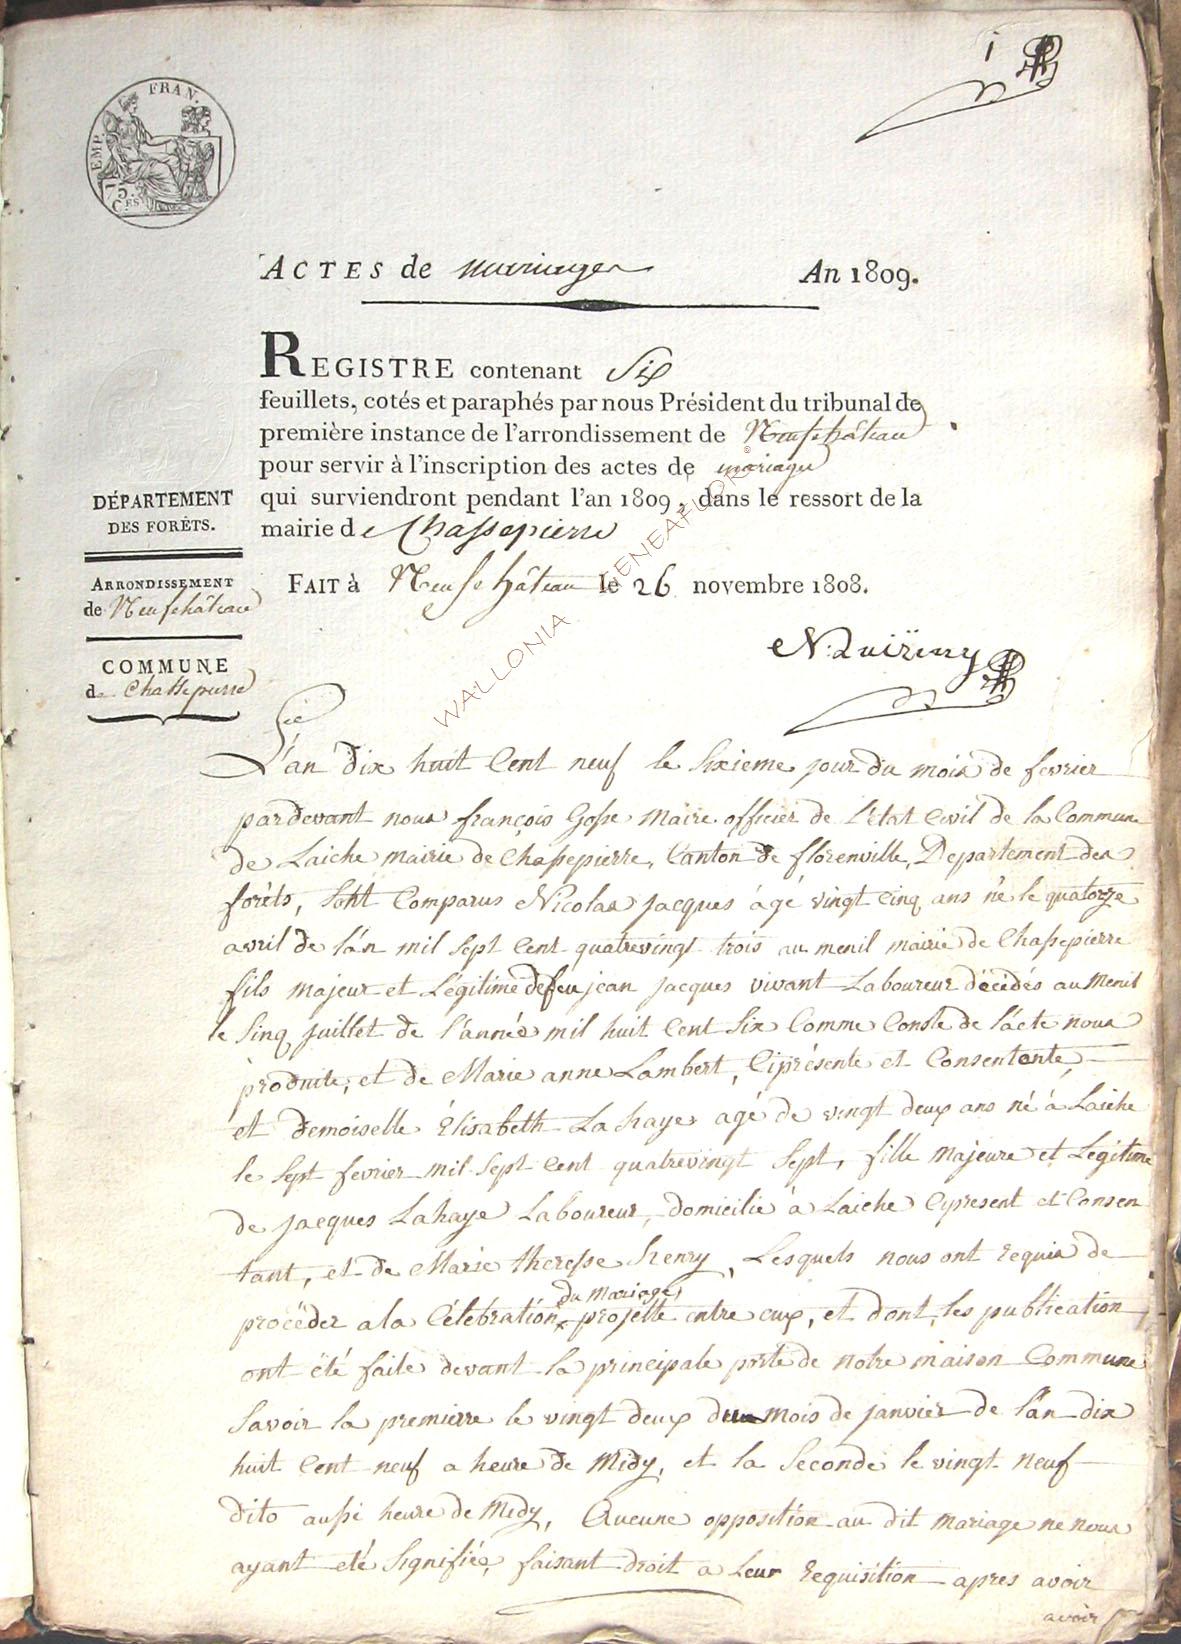 1
EMP. FRAN.
75.
CES
ACTES de mariages An 1809.
REGISTRE contenant Six
feuillets, cotés et paraphés par nous Président du tribunal de
première instance de l'arrondissement de Neufchâteau
pour servir à l'inscription des actes de mariages
qui surviendront pendant l'an 1809, dans le ressort de la
mairie de Chassepierre
FAIT à Neufchâteau le 26 novembre 1808.
DÉPARTEMENT
DES FORÊTS.
ARRONDISSEMENT
de Neufchâteau
COMMUNE
de Chassepierre
WALLONIA GENEAFLOR©
L'an dix huit Cent neuf le Sixieme jour du mois de fevrier
pardevant nous françois Gosse Maire officier de l'état Civil de la Commune
de Laiche mairie de Chassepierre, Canton de florenville, Departement des
forêts, Sont Comparus Nicolas jacques âgé vingt Cinq ans né le quatorze
avril de l'an mil Sept Cent quatrevingt trois au menil mairie de Chassepierre
fils majeur et Légitime de feu jean jacques vivant Laboureur décédés au Menil
le Sinq juillet de l'année mil huit Cent Six Comme Conste de l'acte nous
produite, et de Marie anne Lambert, Ciprésente et Consentente,
et demoiselle Élisabeth Lahaye agé de vingt deux ans né à Laiche
le Sept fevrier mil Sept Cent quatrevingt Sept, fille majeure et Légitime
de jacques Lahaye Laboureur, domicilié à Laiche Cipresent et Consen
tant, et de Marie theresse henry, Lesquels nous ont requis de
du Mariage
procéder a la Célébration projetté entre eux, et dont les publication
ont été faite devant la principale porte de notre maison Commune
Savoir la premierre le vingt deux du mois de janvier de l'an dix
huit Cent neuf a heure de Midy, et la Seconde le vingt neuf
dito aussi heure de Midy, Aucune opposition au dit mariage ne nous
ayant été Signifiée, faisant droit a Leur requisition apres avoir
avoir